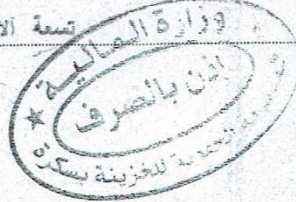 تسعة الا
وزارة المالية
إذن بالصرف
للخزينة بسكرة